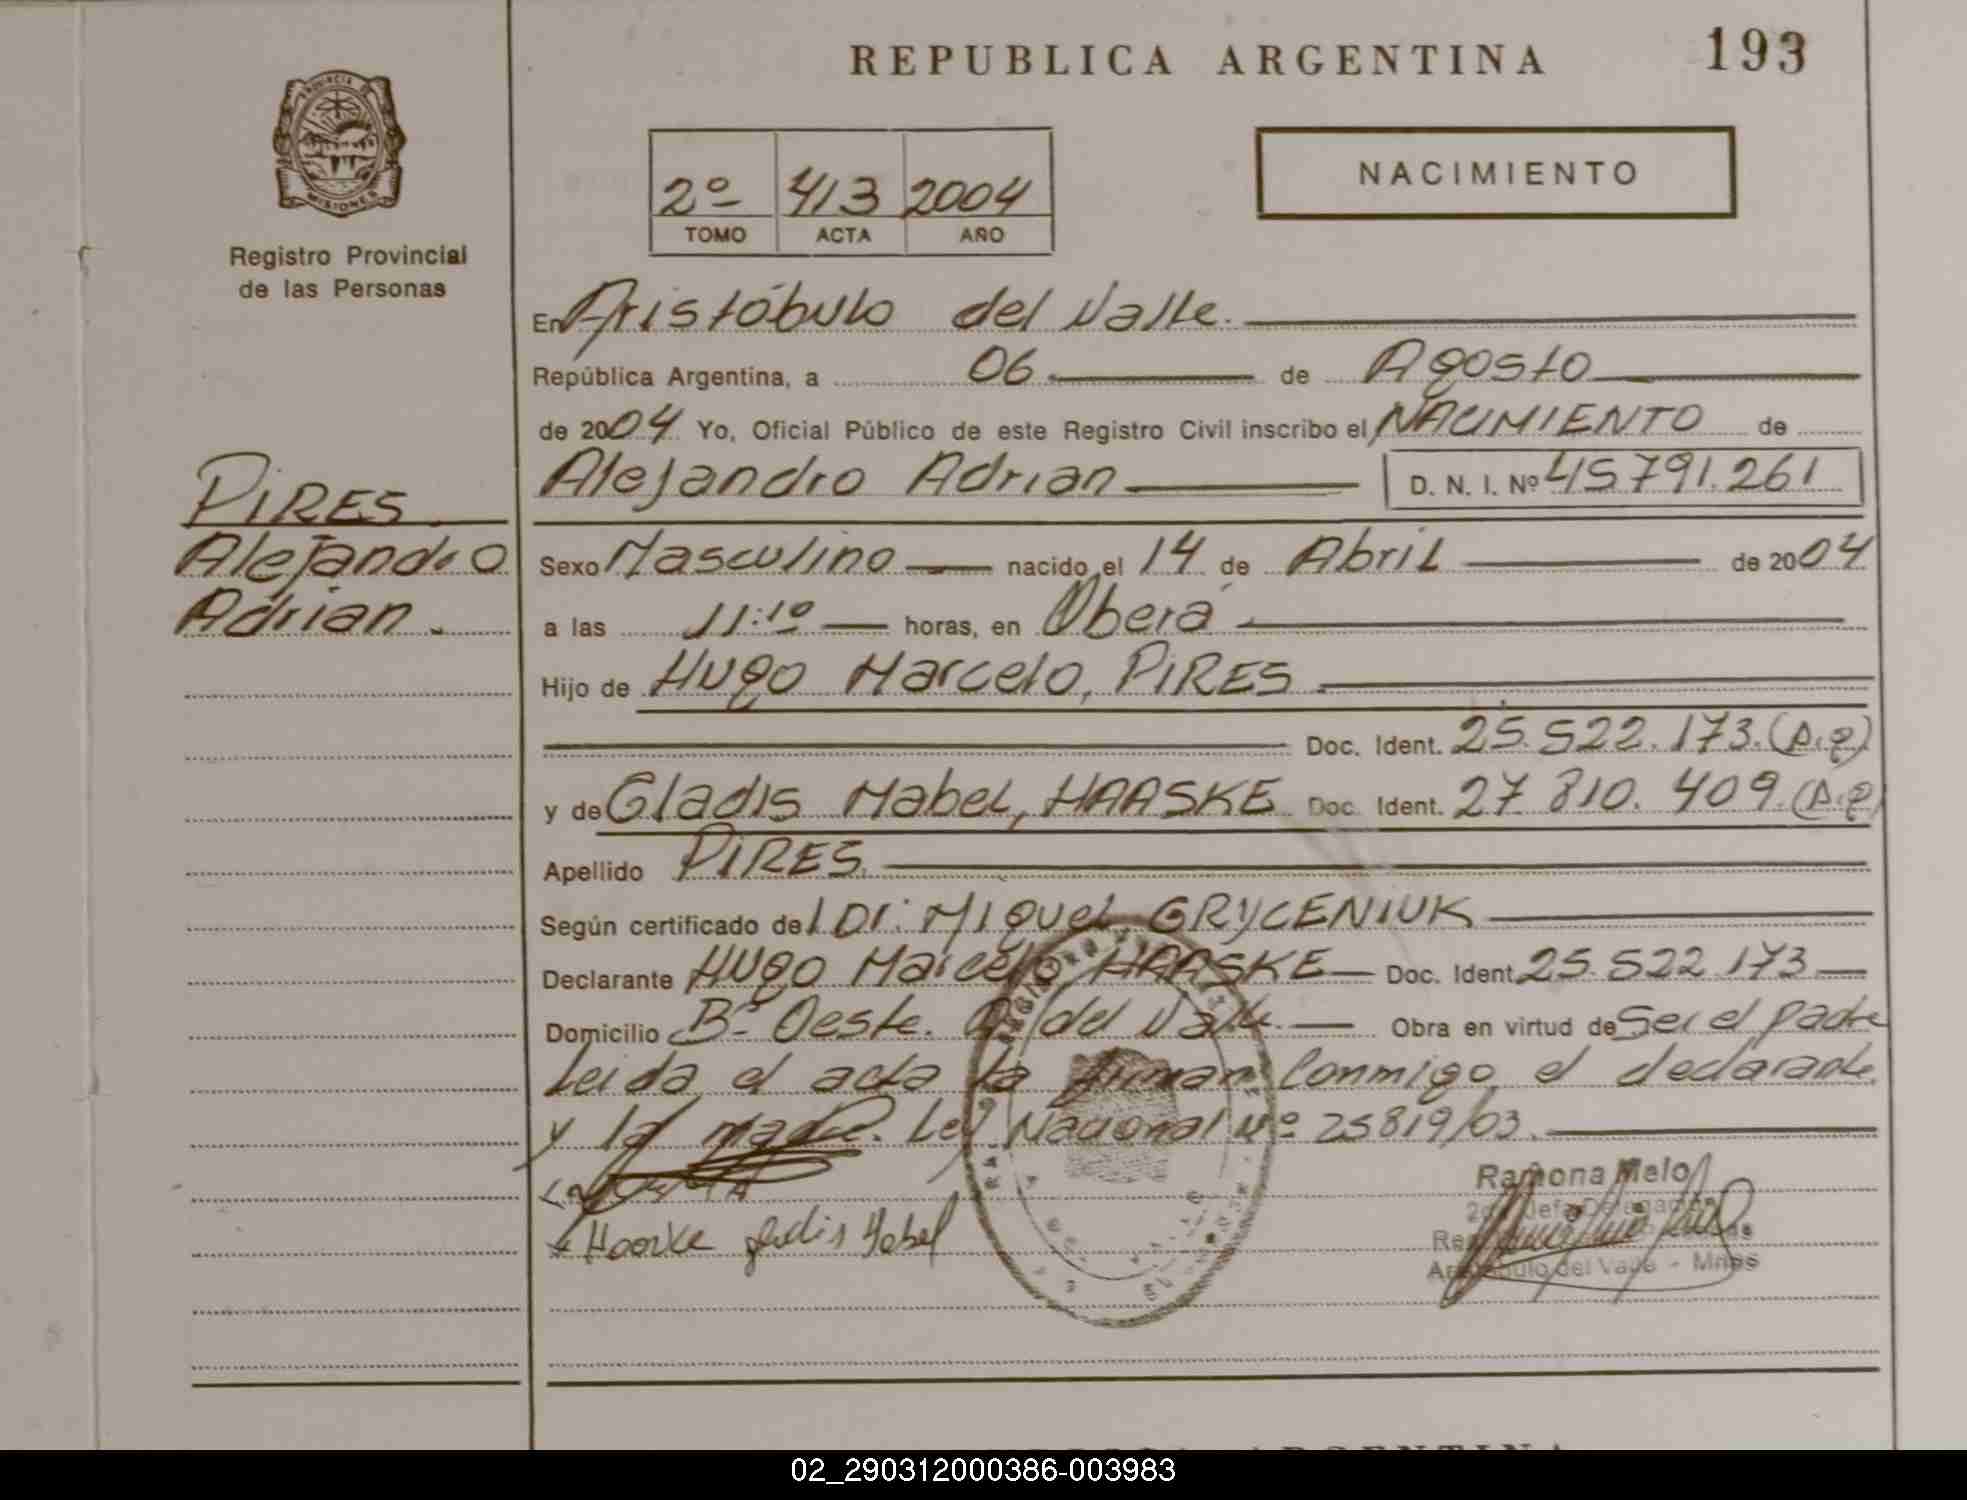 REPUBLICA ARGENTINA
193
PROVINCIA DE
MISIONES
Registro Provincial
de las Personas
2º 413 2004
TOMO ACTA AÑO
NACIMIENTO
PIRES
Alejandro
Adrian.
En Aristóbulo del Valle.
República Argentina, a 06 de Agosto
de 2004 Yo, Oficial Público de este Registro Civil inscribo el NACIMIENTO de
Alejandro Adrian D. N. I. Nº 45791.261
Sexo Masculino nacido el 14 de Abril de 2004
a las 11:10 horas, en Oberá
Hijo de Hugo Marcelo, PIRES
Doc. Ident. 25.522.173.
y de Gladis Mabel, HAASKE Doc. Ident. 27.810.409.
Apellido PIRES.
Según certificado del Dr. Miguel GRYCENIUK
Declarante Hugo Marcelo HAASKE Doc. Ident. 25.522.173
Domicilio Bº Oeste. A. del Valle. Obra en virtud de Ser el padre
Leida el acta la firman conmigo el declarante
y la madre. Ley Nacional Nº 25819/03.
Ramona Melo
Haaske Gladis Mabel
Aristóbulo del Valle - Mnes
02_290312000386-003983